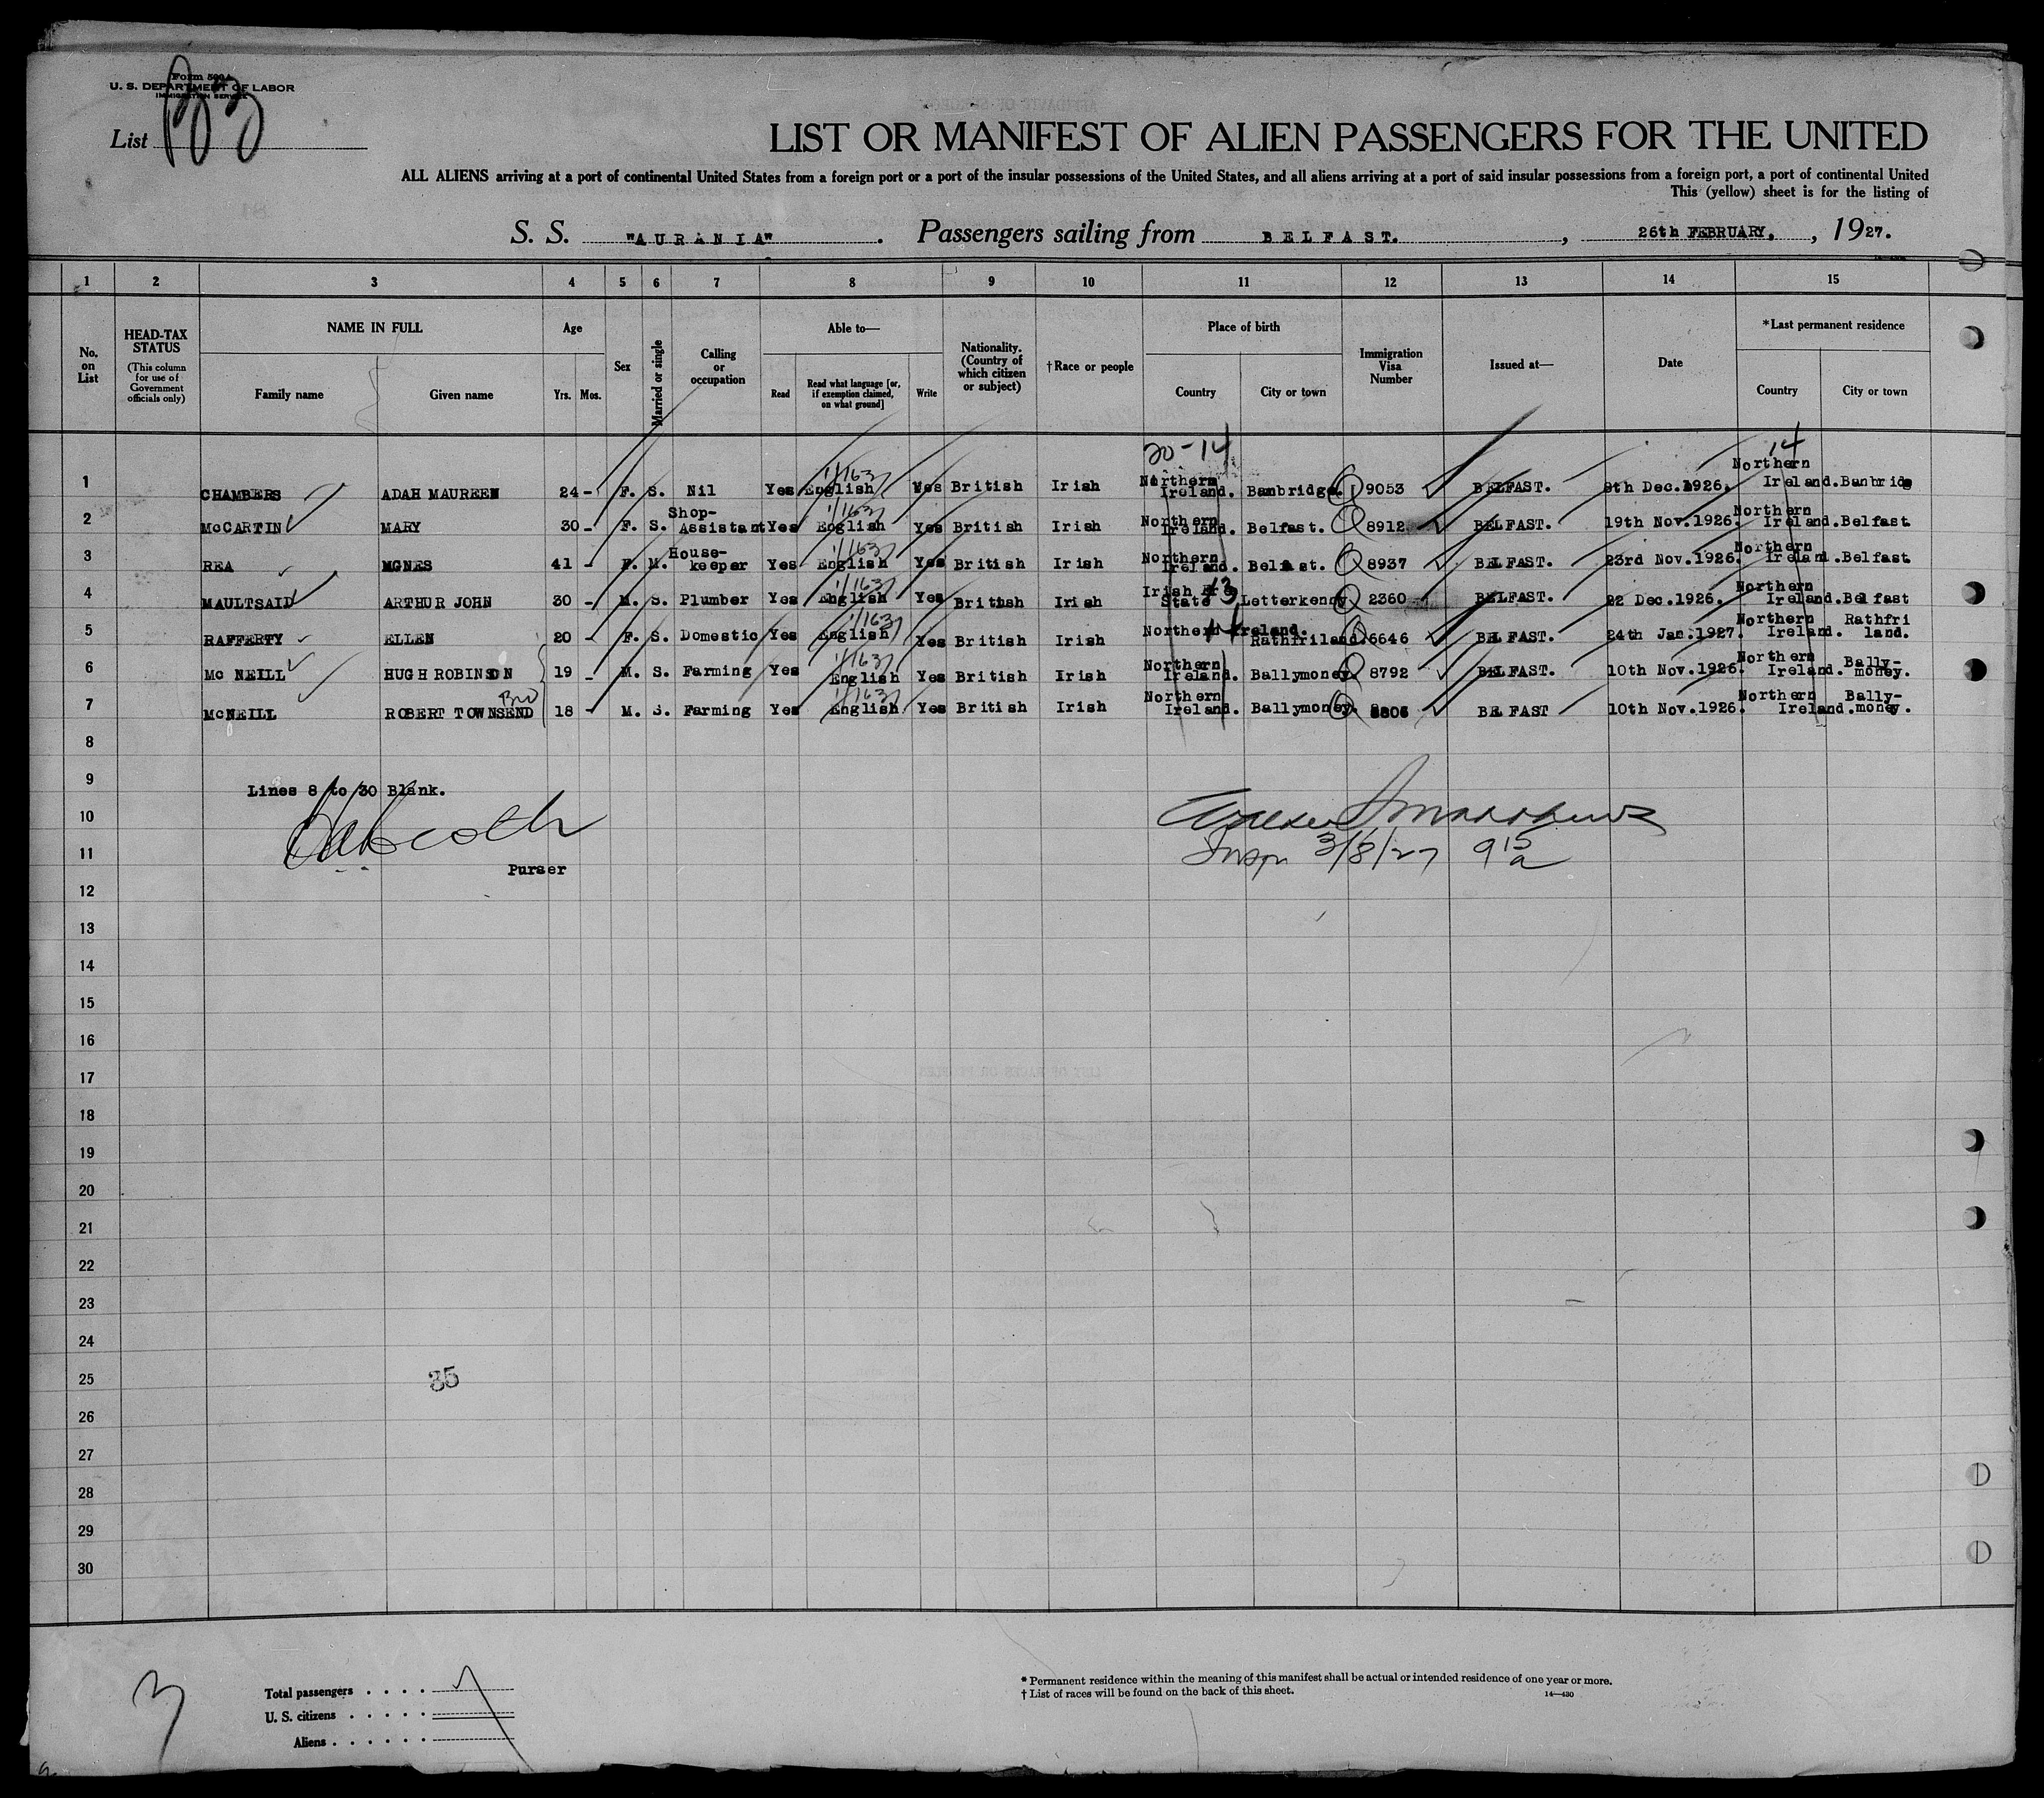 Form 500A
U. S. DEPARTMENT OF LABOR
IMMIGRATION SERVICE
List
LIST OR MANIFEST OF ALIEN PASSENGERS FOR THE UNITED
ALL ALIENS arriving at a port of continental United States from a foreign port or a port of the insular possessions of the United States, and all aliens arriving at a port of said insular possessions from a foreign port, a port of continental United
This (yellow) sheet is for the listing of
S. S. "AURANIA". Passengers sailing from BELFAST., 26th FEBRUARY., 1927.
1 2 3 4 5 6 7 8 9 10 11 12 13 14 15
No. on List
HEAD-TAX STATUS
(This column for use of Government officials only)
NAME IN FULL
Family name Given name
Age
Yrs. Mos.
Sex
Married or single
Calling or occupation
Able to—
Read
Read what language [or, if exemption claimed, on what ground]
Write
Nationality. (Country of which citizen or subject)
†Race or people
Place of birth
Country City or town
Immigration Visa Number
Issued at—
Date
*Last permanent residence
Country City or town
20-14 14
1 CHAMBERS ADAH MAUREEN 24 - F. S. Nil Yes English 1/163 Yes British Irish Northern Ireland. Banbridge. 9053 BELFAST. 8th Dec.1926. Northern Ireland. Banbridg
2 McCARTIN MARY 30 - F. S. Shop-Assistant Yes English 1/163 Yes British Irish Northern Ireland. Belfast. 8912 BELFAST. 19th Nov.1926. Northern Ireland. Belfast
3 REA MGNES 41 - F. M. House-keeper Yes English 1/163 Yes British Irish Northern Ireland. Belfast. 8937 BELFAST. 23rd Nov.1926. Northern Ireland. Belfast
4 MAULTSAID ARTHUR JOHN 30 - M. S. Plumber Yes English 1/163 Yes British Irish Irish Fre State 13 Letterkenny 2360 BELFAST. 22 Dec.1926. Northern Ireland. Belfast
5 RAFFERTY ELLEN 20 - F. S. Domestic Yes English 1/163 Yes British Irish Northern Ireland. 14 Rathfriland. 6646 BELFAST. 24th Jan.1927. Northern Ireland. Rathfri land.
6 Mc NEILL HUGH ROBINSON 19 - M. S. Farming Yes English 1/163 Yes British Irish Northern Ireland. Ballymoney 8792 BELFAST. 10th Nov.1926. Northern Ireland. Bally-money.
Bro
7 McNEILL ROBERT TOWNSEND 18 - M. S. Farming Yes English. 1/163 Yes British Irish Northern Ireland. Ballymoney BELFAST 10th Nov.1926. Northern Ireland. Bally-money.
8
9
Lines 8 to 30 Blank.
10
11
Insp 3/8/27 9 15 a
Purser
12
13
14
15
16
17
18
19
20
21
22
23
24
25
35
26
27
28
29
30
* Permanent residence within the meaning of this manifest shall be actual or intended residence of one year or more.
† List of races will be found on the back of this sheet.
14—430
Total passengers . . . .
U. S. citizens . . . . .
Aliens . . . . . .